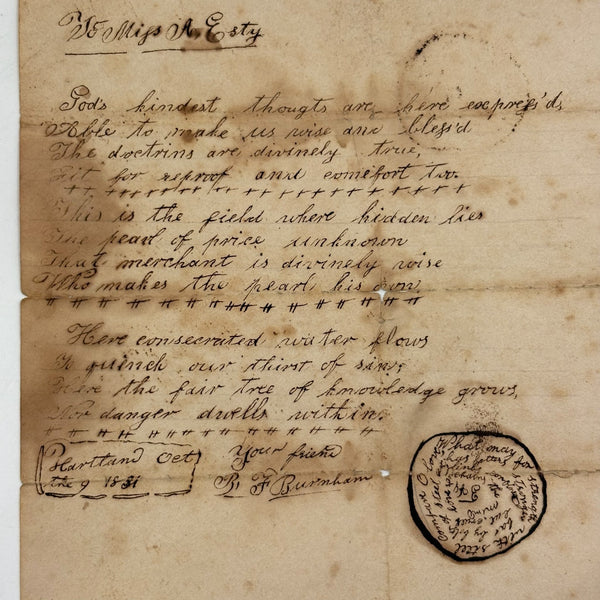 To Miss A. Esty
God's kindest thougts are here express'd,
Able to make us wise and bless'd
The doctrins are divinely true,
Fit for reproof and comefort too.
This is the field where hidden lies
The pearl of price unknown
That merchant is divinely wise
Who makes the pearl his own.
Here consecrated water flows
To quench our thirst of sin;
Here the fair tree of knowledge grows,
Nor danger dwells within.
Hartland Oct Your friend
the 9 1831 B F Burnham
What may for strength with steel